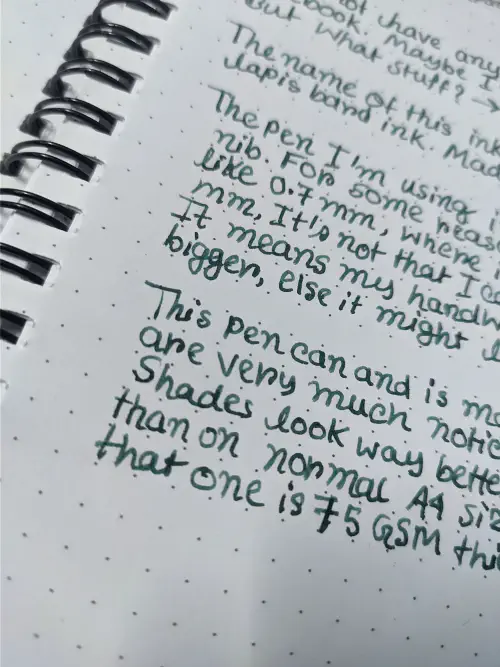 not have any
book. Maybe I
But what stuff? →
The name of this ink
lapis band ink. Mad
The pen I'm using
nib. For some reas
like 0.7 mm, where
mm, It's not that I
It means my handw
bigger, else it might
This pen can and is mo
are very much notic
Shades look way bette
than on normal A4 siz
that one is 75 GSM thi